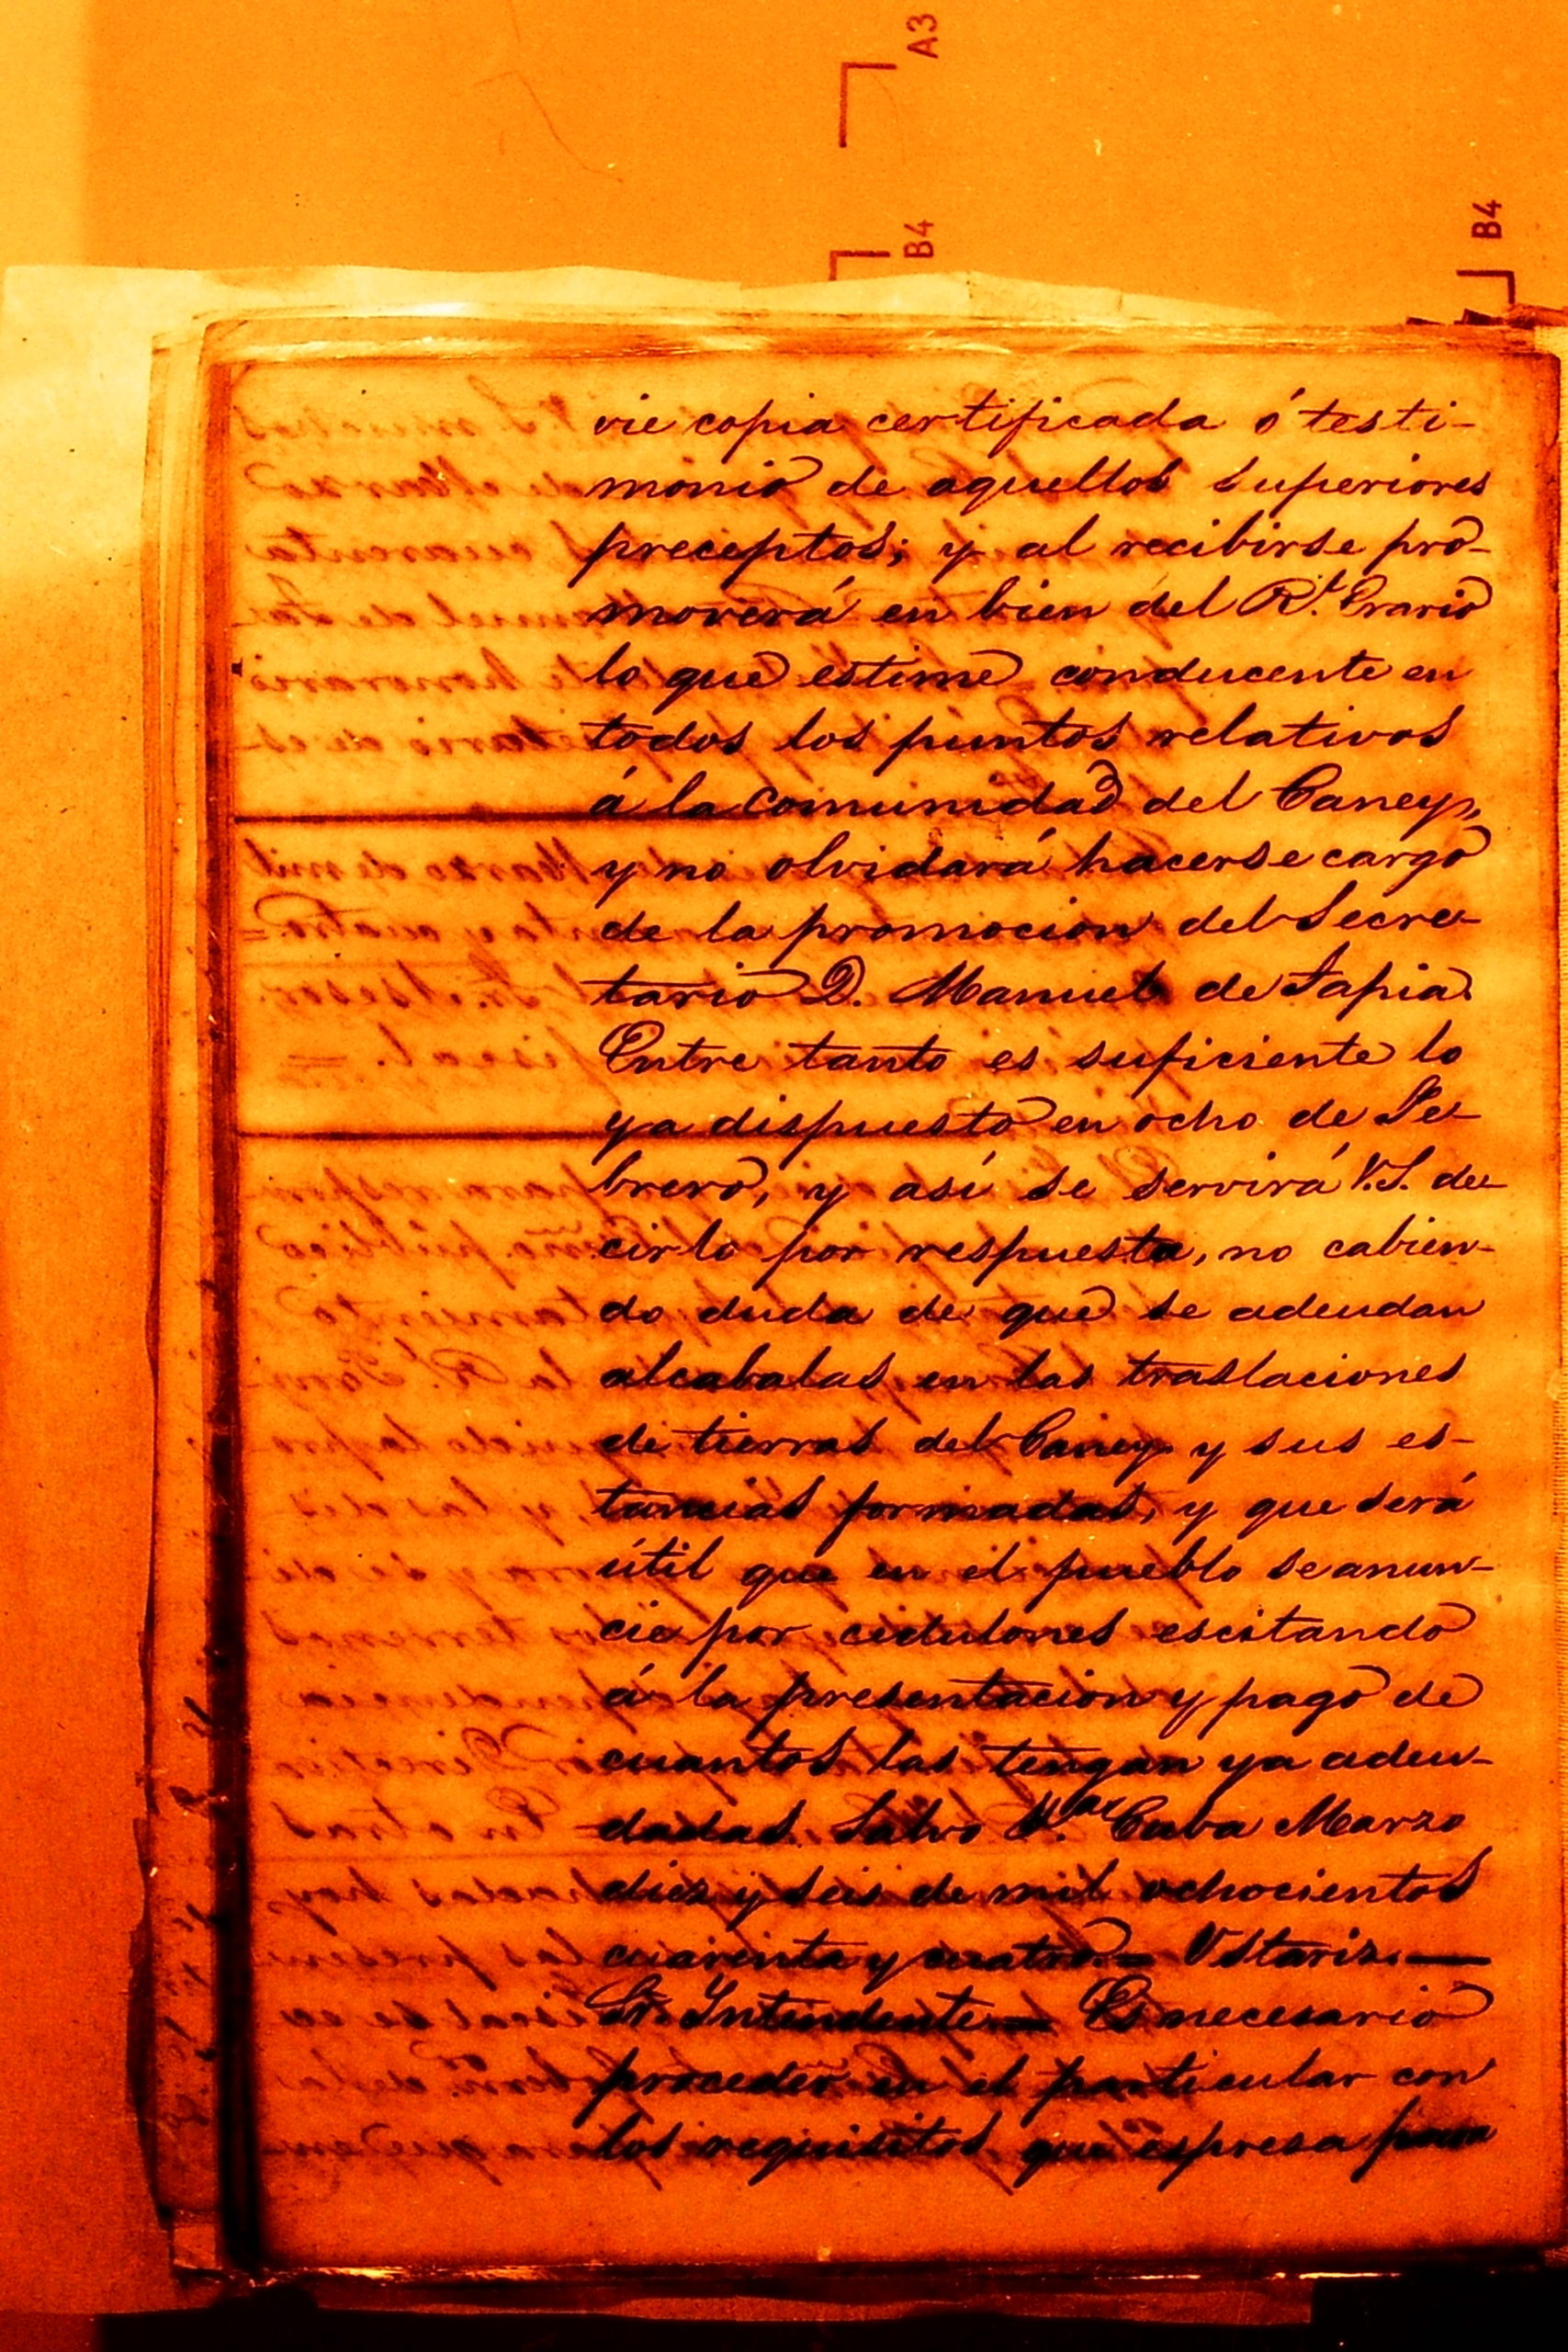 A3
B4
B4
vie copia certificada ó testi-
monio de aquellos superiores
preceptos; y al recibirse pro-
moverá en bien del Rl. Erario
lo que estime conducente en
todos los puntos relativos
á la comunidad del Caney,
y no olvidará hacerse cargo
de la promocion del Secre-
tario D. Manuel de Tapia.
Entre tanto es suficiente lo
ya dispuesto en ocho de Fe-
brero, y así se servirá V.S. de-
cirlo por respuesta, no cabien-
do duda de que se adeudan
alcabalas en las traslaciones
de tierras del Caney y sus es-
tancias formadas, y que será
útil que en el pueblo se anun-
cie por cedulones escitando
á la presentacion y pago de
cuantos las tengan ya adeu-
dadas. Salvo Cuba Marzo
diez y seis de mil ochocientos
cuarenta y cuatro = Ustariz. —
Sr. Intendente — Es necesario
proceder en el particular con
los requisitos que espresa para